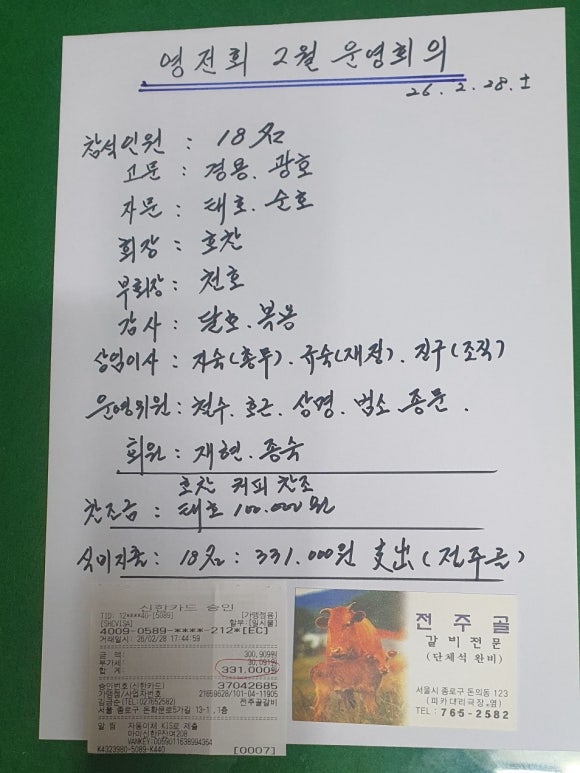 영전회 2월 운영회의
26. 2. 28. 土
참석인원 : 18名
고문 : 경용. 광호
자문 : 태호. 순호
회장 : 호찬
부회장 : 천호
감사 : 달호. 복용
상임이사 : 지숙(총무). 국숙(재정). 진구(조직)
운영위원 : 철수. 호근. 상명. 범소. 종문.
회원 : 재현. 종숙
호찬 커피 찬조
찬조금 : 태호 100.000원
식비지출 : 18名 : 331.000원 支出 (전주골)
신한카드 승인
TID: 12****40-[5089] [가맹점용]
[SHCVISA] 할부:[일시불]
4009-0589-****-212*[EC]
거래일시: 26/02/28 17:44:59
금 액 300,909원
부가세 30,091원
합 계 331,000원
승인번호(신한카드) 37042685
가맹점/사업자번호 21659628/101-04-11905
김금순(TEL:027652582) 전주골갈비
서울 종로구 돈화문로5가길 13-1 ,1층
알 림 자동이체 KIS로 제출
VANKEY:0059011638994364
K4323980-5089-K440 [0007]
전주골
갈비전문
(단체석 완비)
서울시 종로구 돈의동 123
(피카디리극장 옆)
TEL : 765-2582